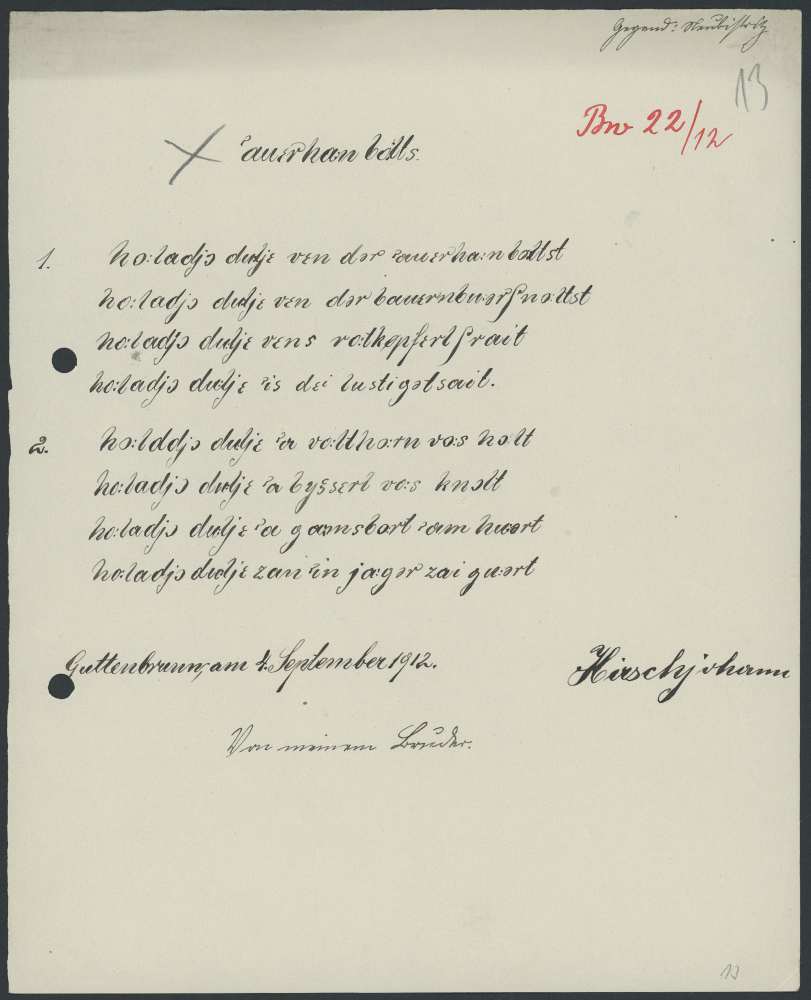 Gegend: Neubistritz
13
Bw 22/12
ˀauerhan bɑlts.
1. ho:ladjɔ dulje ven dər ˀauerha:n bɑltst
ho:ladjɔ dulje ven dər bauernbuərʃ nɑ:ltst
ho:ladjɔ dulje vens ro:tkepferl ʃrait
ho:ladjɔ dulje ˀis dei lustigstsait.
2. ho:laddjɔ dulje ˀa vo:lthorn vo:s holt
ho:ladjɔ dulje ˀa byssert vo:s knolt
ho:ladjɔ dulje ˀa gamsbort ˀam huort
ho:ladjɔ dulje zan ˀin ja:gər zai guərt
Guttenbrunn, am 4. September 1912.
Hirschjohann
Von meinem Bruder.
13